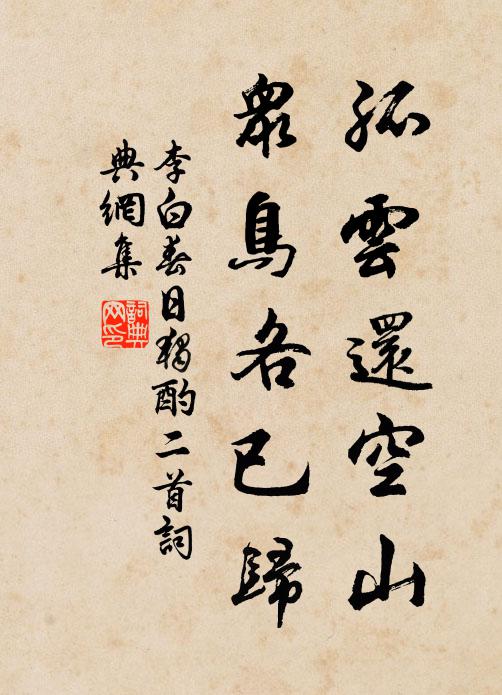 孤雲還空山
眾鳥各已歸
李白春日獨酌二首詞
典網集
詞典網印